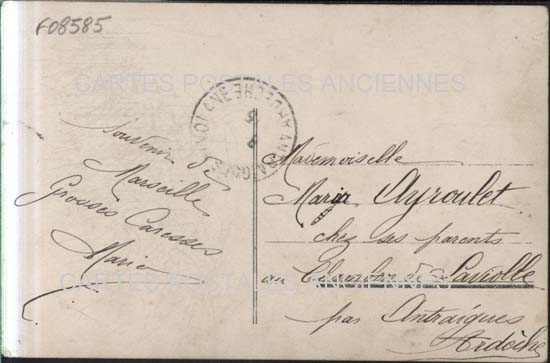 F08585
CARTES POSTALES ANCIENNES
Souvenir de
Marseille
Grosses Caresses
Marie
Mademoiselle
Maria Ayroulet
chez ses parents
au de Laviolle
par Antraigues
Ardèche
CARTES POSTALES ANCIENNES